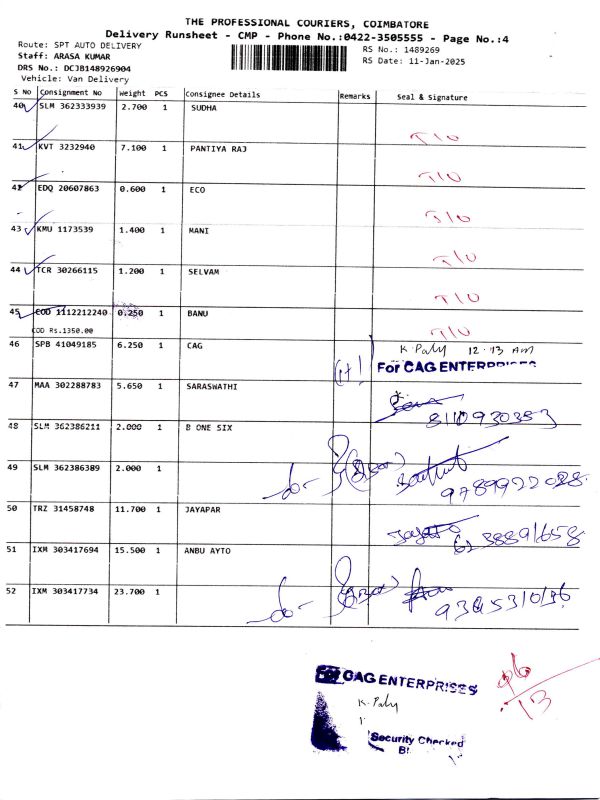 THE PROFESSIONAL COURIERS, COIMBATORE
Delivery Runsheet - CMP - Phone No.:0422-3505555 - Page No.:4
Route: SPT AUTO DELIVERY
Staff: ARASA KUMAR
DRS No.: DCJB148926904
Vehicle: Van Delivery
RS No.: 1489269
RS Date: 11-Jan-2025
S No Consignment No Weight PCS Consignee Details Remarks Seal & Signature
40 SLM 362333939 2.700 1 SUDHA
T/O
41 KVT 3232940 7.100 1 PANTIYA RAJ
T/O
42 EDQ 20607863 0.600 1 ECO
T/O
43 KMU 1173539 1.400 1 MANI
T/O
44 TCR 30266115 1.200 1 SELVAM
T/O
45 COD 1112212240 0.250 1 BANU
COD Rs.1350.00
T/O
46 SPB 41049185 6.250 1 CAG
K. Paly 12.13 AM
For CAG ENTERPRISES
47 MAA 302288783 5.650 1 SARASWATHI
8110930353
48 SLM 362386211 2.000 1 B ONE SIX
49 SLM 362386389 2.000 1
9789922028
50 TRZ 31458748 11.700 1 JAYAPAR
51 IXM 303417694 15.500 1 ANBU AYTO
52 IXM 303417734 23.700 1
For CAG ENTERPRISES
K. Paly
Security Checked
96/13